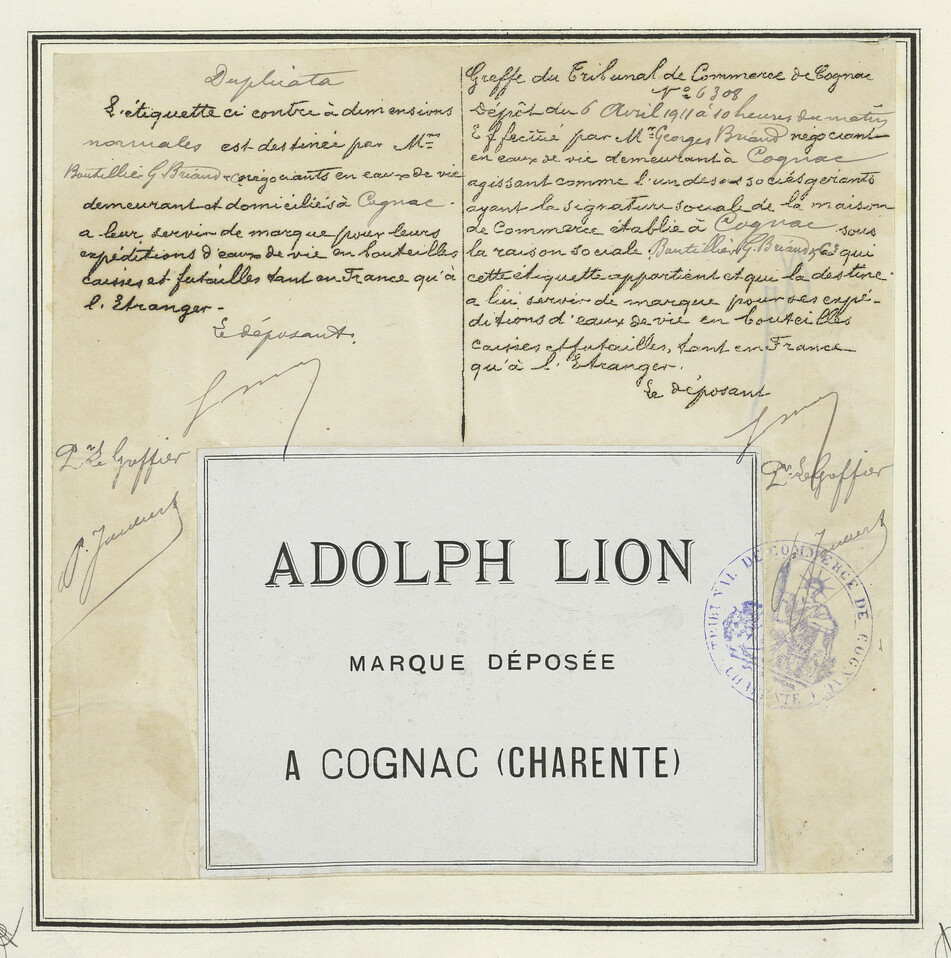 Duplicata
L'étiquette ci contre à dimensions
normales est destinée par Mrs
Boutillier G. Briand & Co négociants en eaux de vie
demeurant et domiciliés à Cognac.
a leur servir de marque pour leurs
expéditions d'eaux de vie en bouteilles
caisses et futailles tant en France qu'à
l'Etranger.
Le déposant.
Pr Le Greffier
Greffe du Tribunal de Commerce de Cognac
No 6308
Dépôt du 6 Avril 1911 à 10 heures du matin
Effectué par Mr Georges Briand négociant
en eaux de vie demeurant à Cognac
agissant comme l'un des sociés gérants
ayant la signature sociale de la maison
de Commerce établie à Cognac sous
la raison sociale Boutillier G. Briand & Co qui
cette étiquette appartient et que la destine
a lui servir de marque pour ses expé-
ditions d'eaux de vie en bouteilles
caisses et futailles, tant en France
qu'à l'Etranger.
Le déposant
Pr Le Greffier
ADOLPH LION
MARQUE DÉPOSÉE
A COGNAC (CHARENTE)
TRIBUNAL DE COMMERCE DE COGNAC
CHARENTE